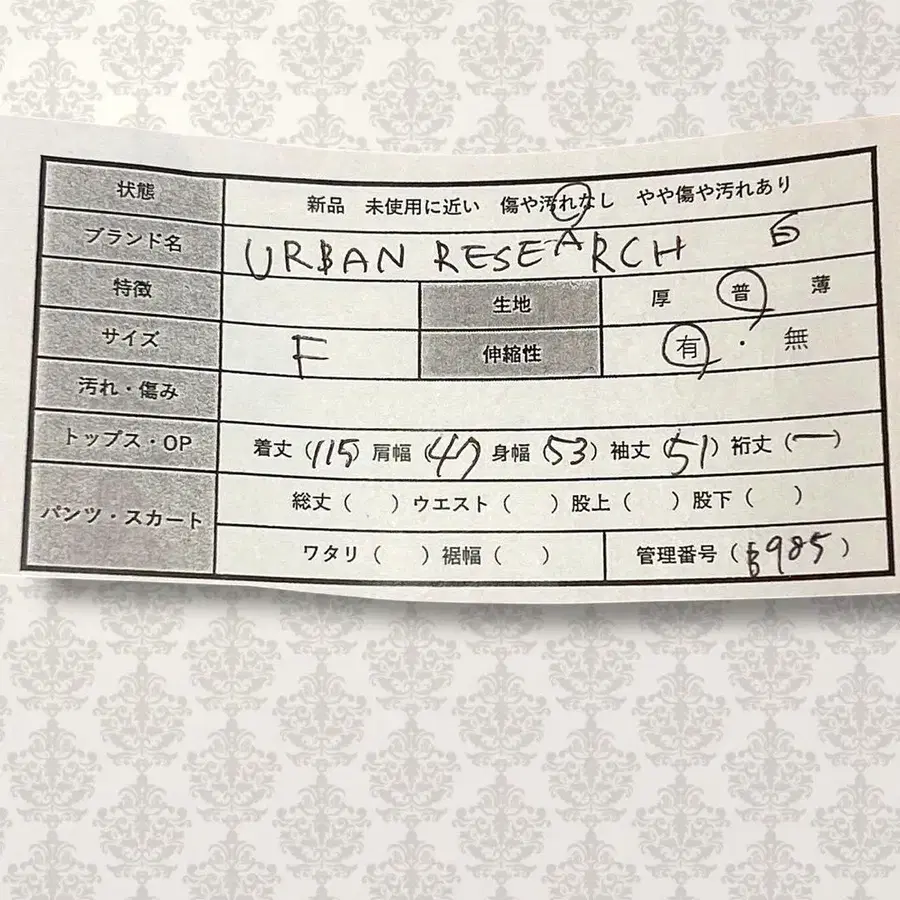 状態 新品 未使用に近い 傷や汚れなし やや傷や汚れあり
ブランド名 URBAN RESEARCH
特徴 生地 厚 普 薄
サイズ F 伸縮性 有 ・ 無
汚れ・傷み
トップス・OP 着丈 (115) 肩幅 (47) 身幅 (53) 袖丈 (51) 裄丈 (ー)
パンツ・スカート 総丈 ( ) ウエスト ( ) 股上 ( ) 股下 ( )
ワタリ ( ) 裾幅 ( ) 管理番号 ( 985 )